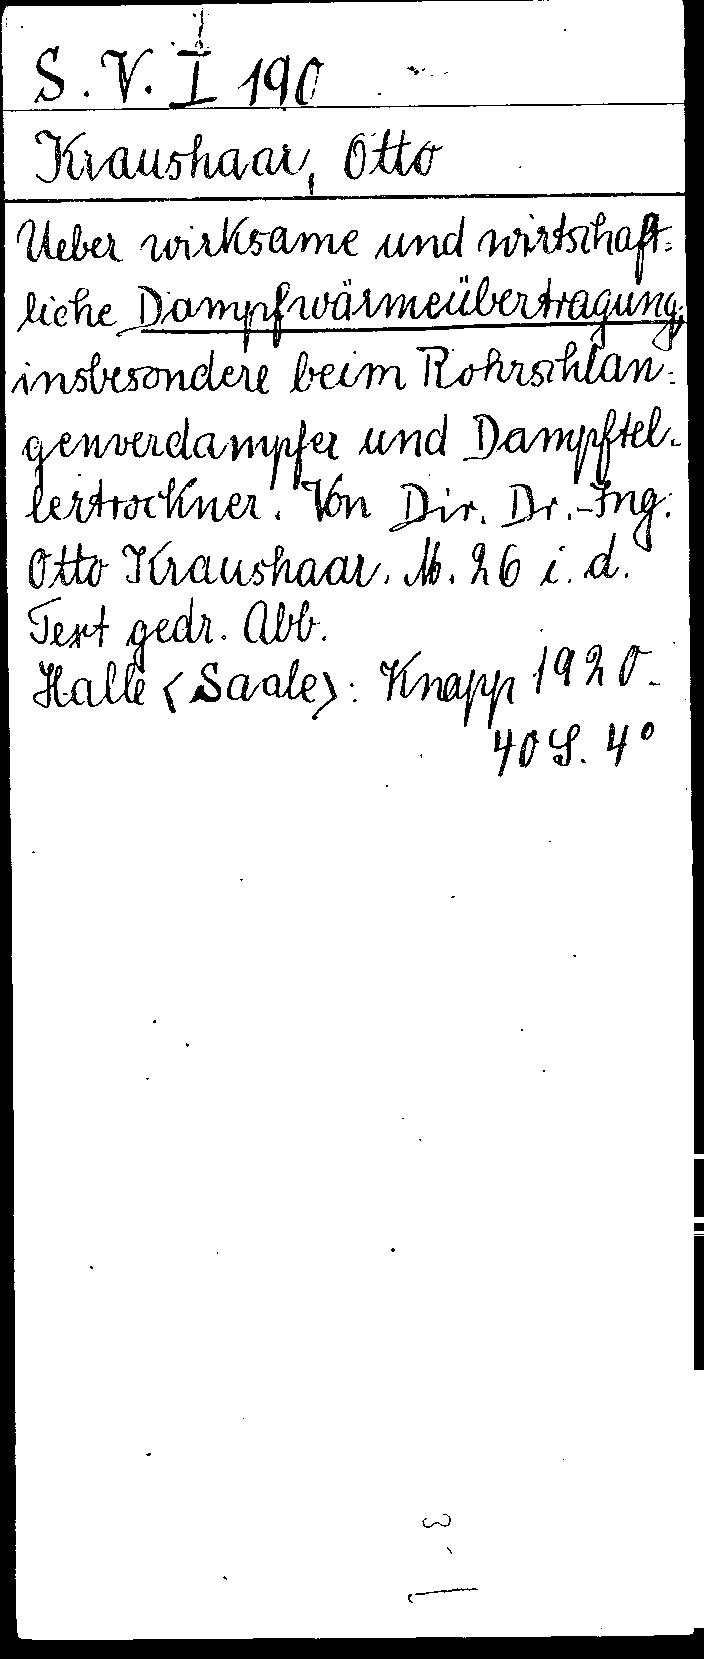 S. V. I 190
Kraushaar, Otto
Ueber wirksame und wirtschaft-
liche Dampfwärmeübertragung,
insbesondere beim Rohrschlan-
genverdampfer und Dampftel-
lertrockner. Von Dir. Dr.-Ing.
Otto Kraushaar. M. 26 i. d.
Text gedr. Abb.
Halle <Saale>: Knapp 1920.
40 S. 4°